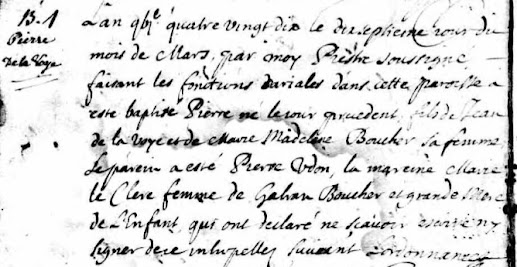 B. 1
Pierre
De la Voye
L'an gbj.c quatre vingt dix le dixseptieme jour du
mois de Mars, par moy Prestre soussigné
faisant les fonctions Curiales dans cette paroisse a
esté baptisé Pierre né le jour precedent, fils de Jean
de la Voye et de Marie Madeleine Boucher sa femme
Le parein a esté Pierre Udon, la mareine Marie
le Clerc femme de Galran Boucher et grande Mere
de L'Enfant, qui ont declaré ne scavoir escrire ny
signer de ce interpellez suivant L'ordonnance